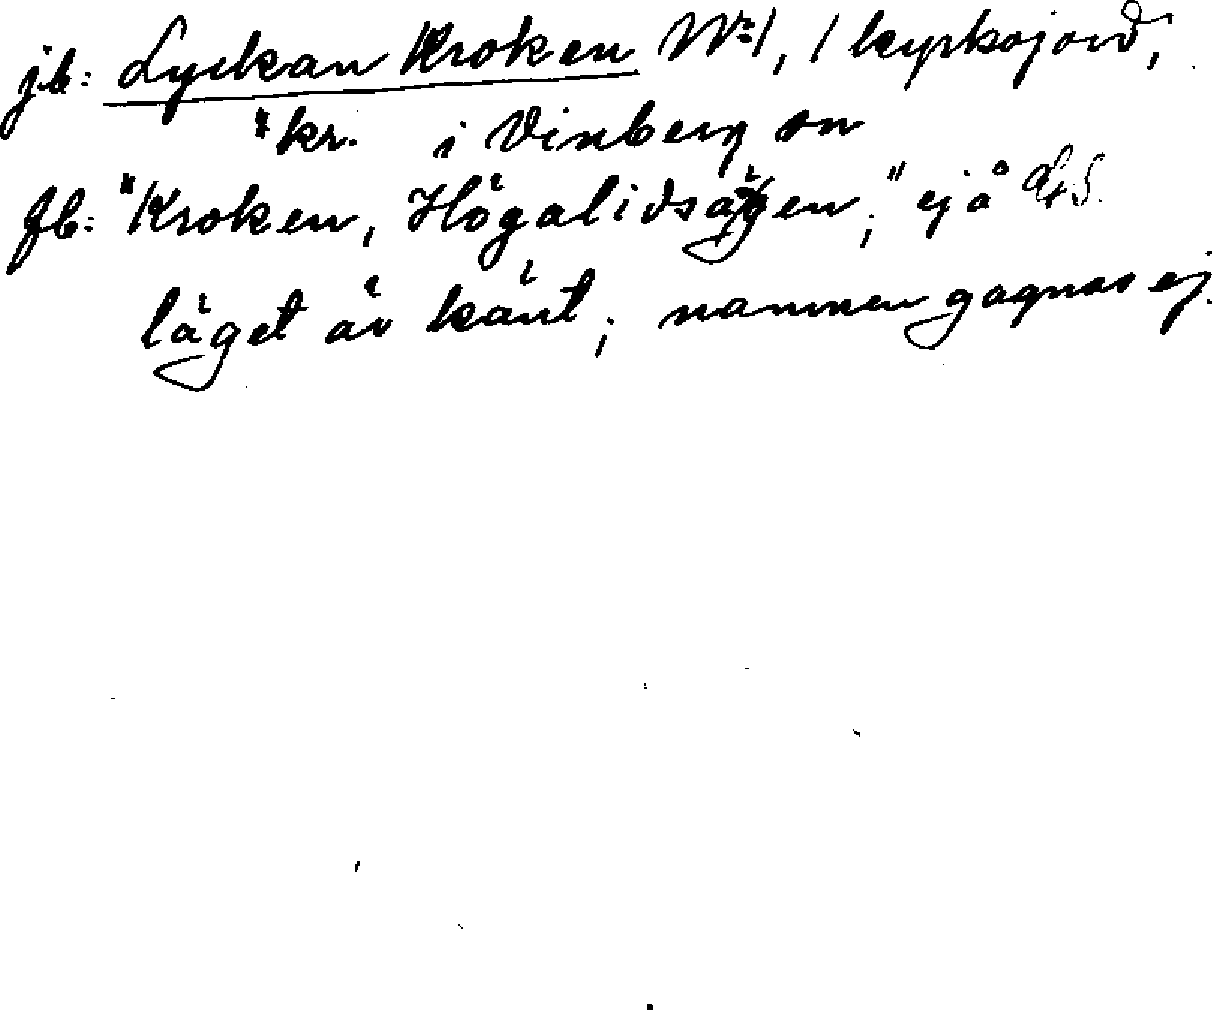 jb: Lyckan Kroken Nr 1, 1 kyrkojord,
"kr. i Vinberg sn
fb: "Kroken, Högalidsägen," ej å
läget är känt; namnen gagnas ej.